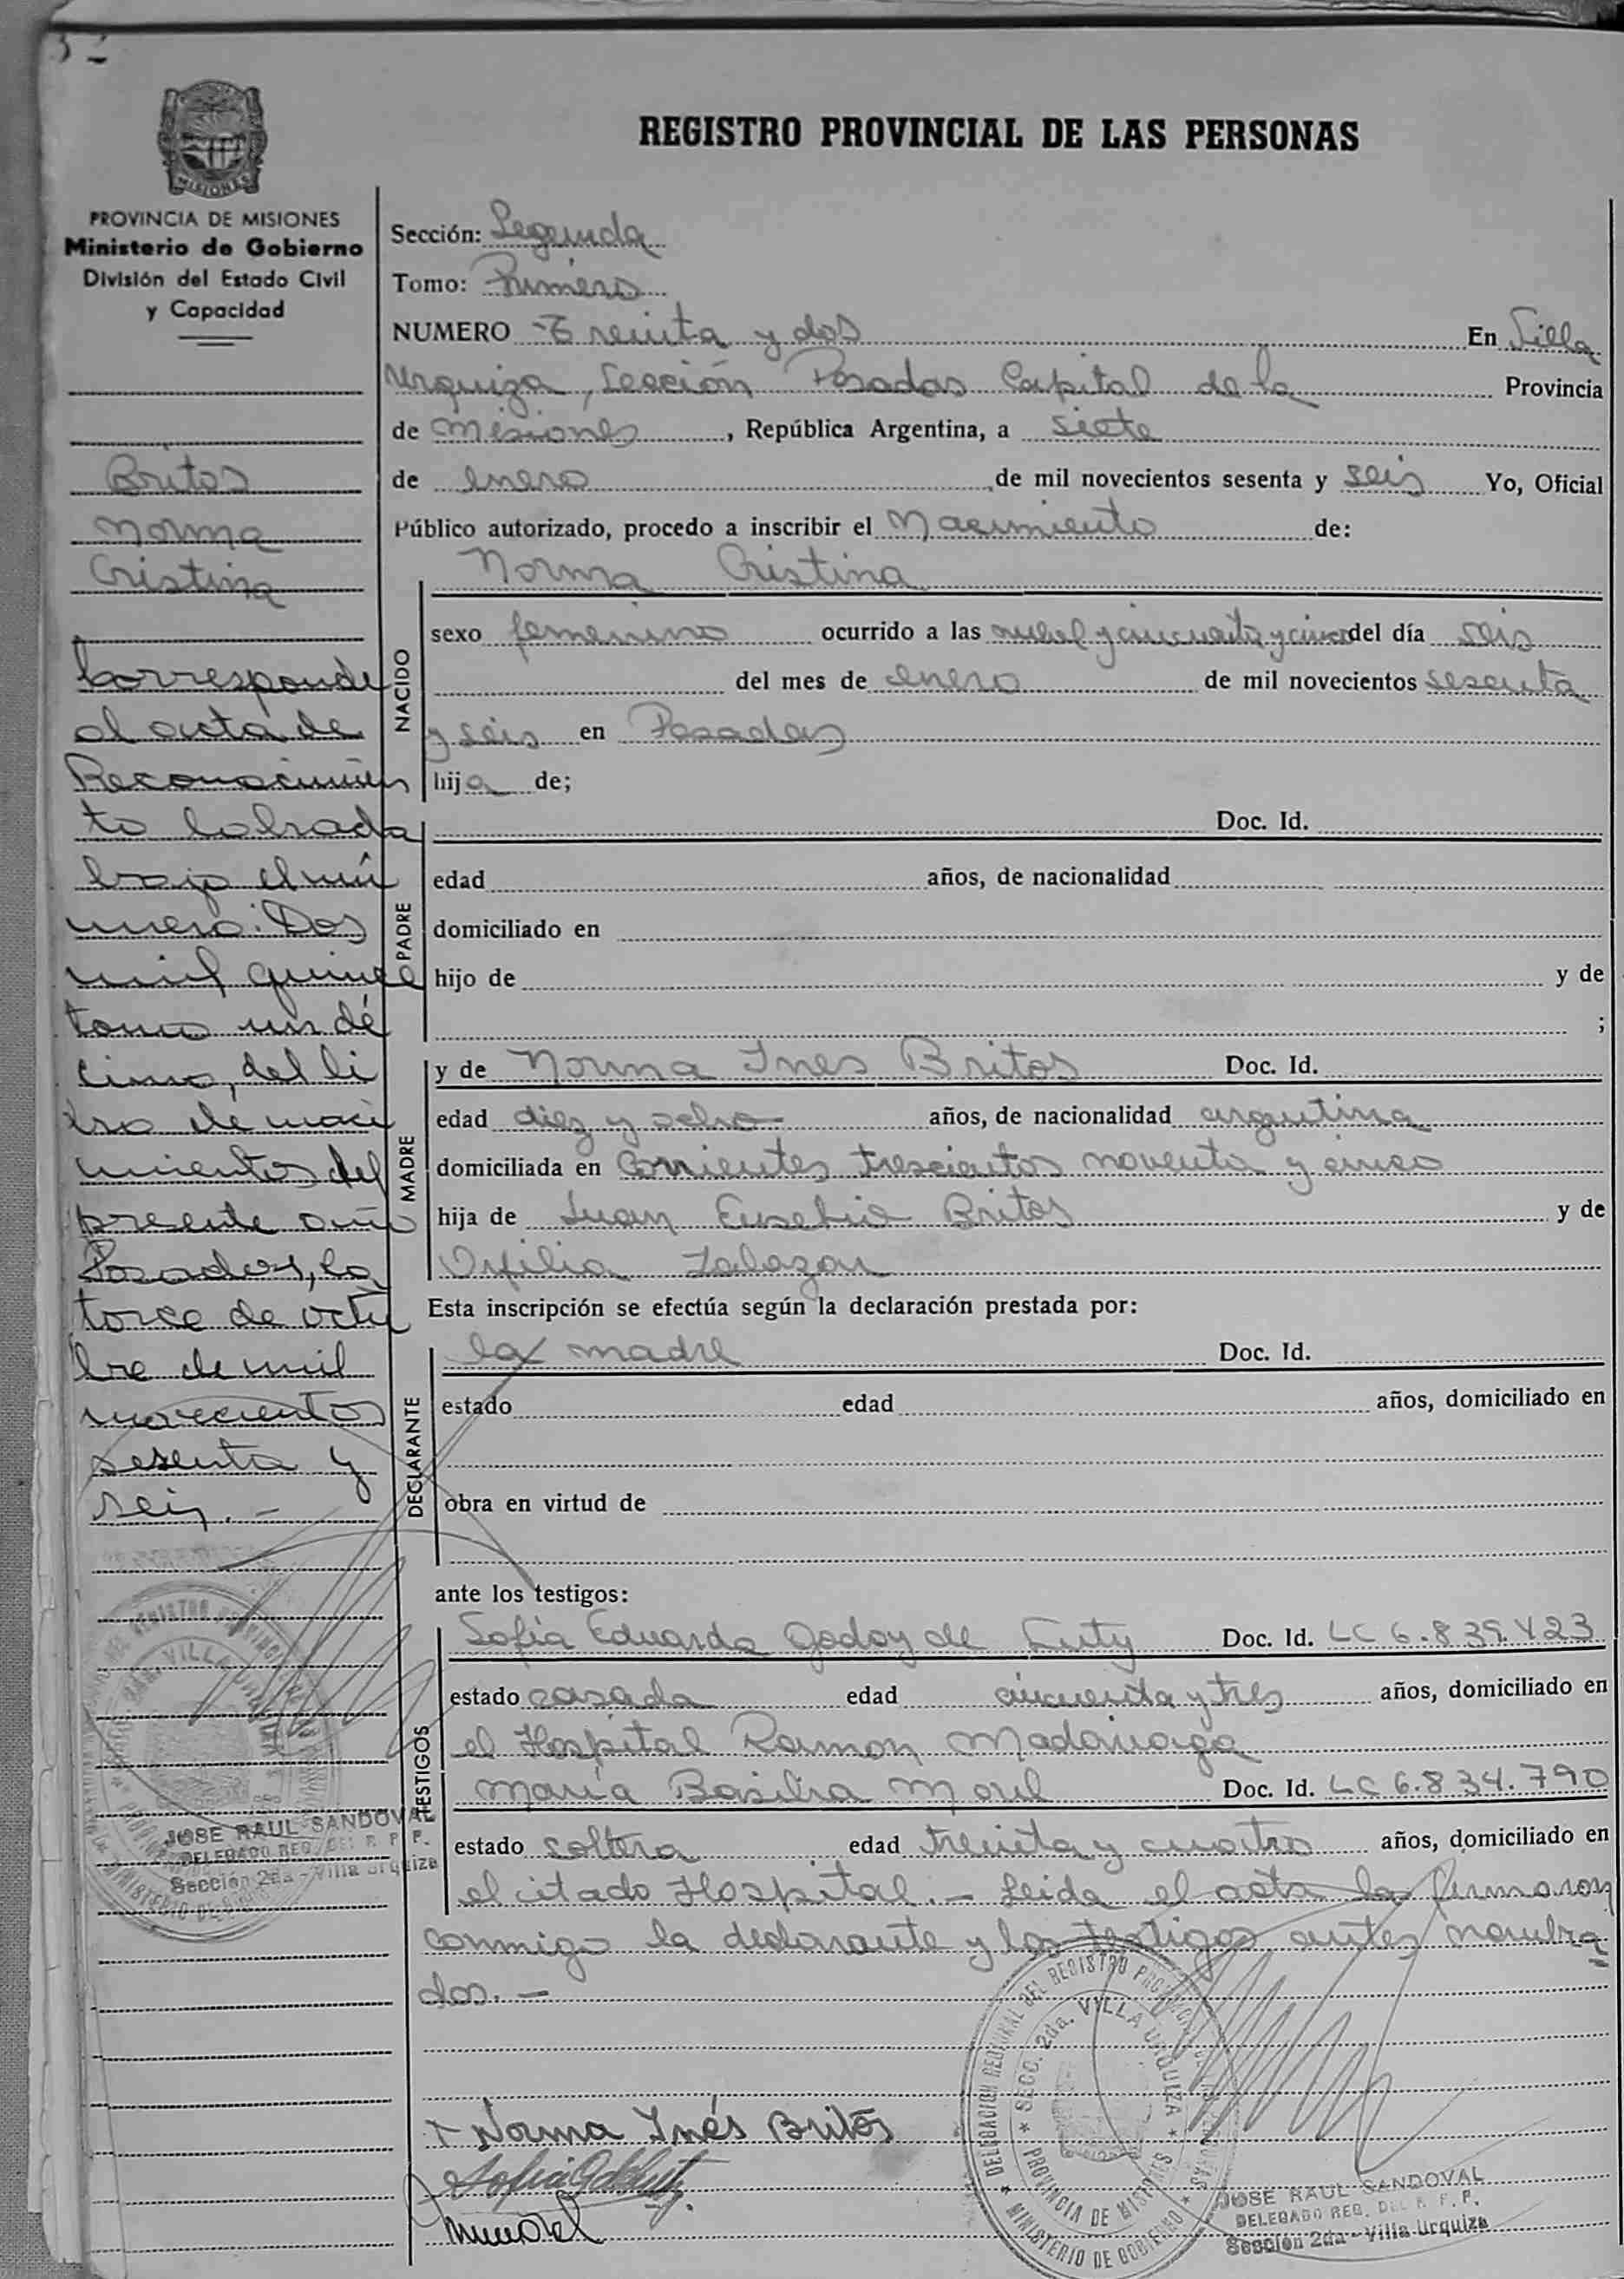 32
MISIONES
PROVINCIA DE MISIONES
Ministerio de Gobierno
División del Estado Civil
y Capacidad
Britos
Norma
Cristina
Corresponde
al acta de
Reconocimien
to labrada
bajo el nú
mero: Dos
mil quince
tomo undé
cimo, del li
bro de naci
mientos del
presente año
Posadas, ca
torce de octu
bre de mil
novecientos
sesenta y
seis.-
JOSE RAUL SANDOVAL
DELEGADO REG. DEL R. P. P.
Sección 2da - Villa Urquiza
REGISTRO PROVINCIAL DE LAS PERSONAS
Sección: Segunda
Tomo: Primero
NUMERO Treinta y dos En Villa
Urquiza, Sección Posadas Capital de la Provincia
de Misiones, República Argentina, a siete
de enero de mil novecientos sesenta y seis Yo, Oficial
Público autorizado, procedo a inscribir el Nacimiento de:
NACIDO
Norma Cristina
sexo femenino ocurrido a las y cincuenta y cinco del día seis
del mes de enero de mil novecientos sesenta
y seis en Posadas
hija de;
PADRE
Doc. Id.
edad años, de nacionalidad
domiciliado en
hijo de y de
;
MADRE
y de Norma Ines Britos Doc. Id.
edad diez y ocho años, de nacionalidad argentina
domiciliada en Corrientes trescientos noventa y cinco
hija de Juan Eusebio Britos y de
Orfilia Zalazar
Esta inscripción se efectúa según la declaración prestada por:
DECLARANTE
la madre Doc. Id.
estado edad años, domiciliado en
obra en virtud de
ante los testigos:
TESTIGOS
Sofía Eduarda Godoy de Doc. Id. LC 6.839.423
estado casada edad cincuenta y tres años, domiciliado en
el Hospital Ramon Madariaga
María Basilia Morel Doc. Id. LC 6.834.790
estado soltera edad treinta y cuatro años, domiciliado en
el citado Hospital.- Leida el acta la firmaron
conmigo la declarante y los testigos antes nombra
dos.-
Norma Inés Britos
DELEGACION REGIONAL DEL REGISTRO PROVINCIAL DE LAS PERSONAS
SECC. 2da. VILLA URQUIZA
PROVINCIA DE MISIONES
MINISTERIO DE GOBIERNO
JOSE RAUL SANDOVAL
DELEGADO REG. DEL R. P. P.
Sección 2da - Villa Urquiza